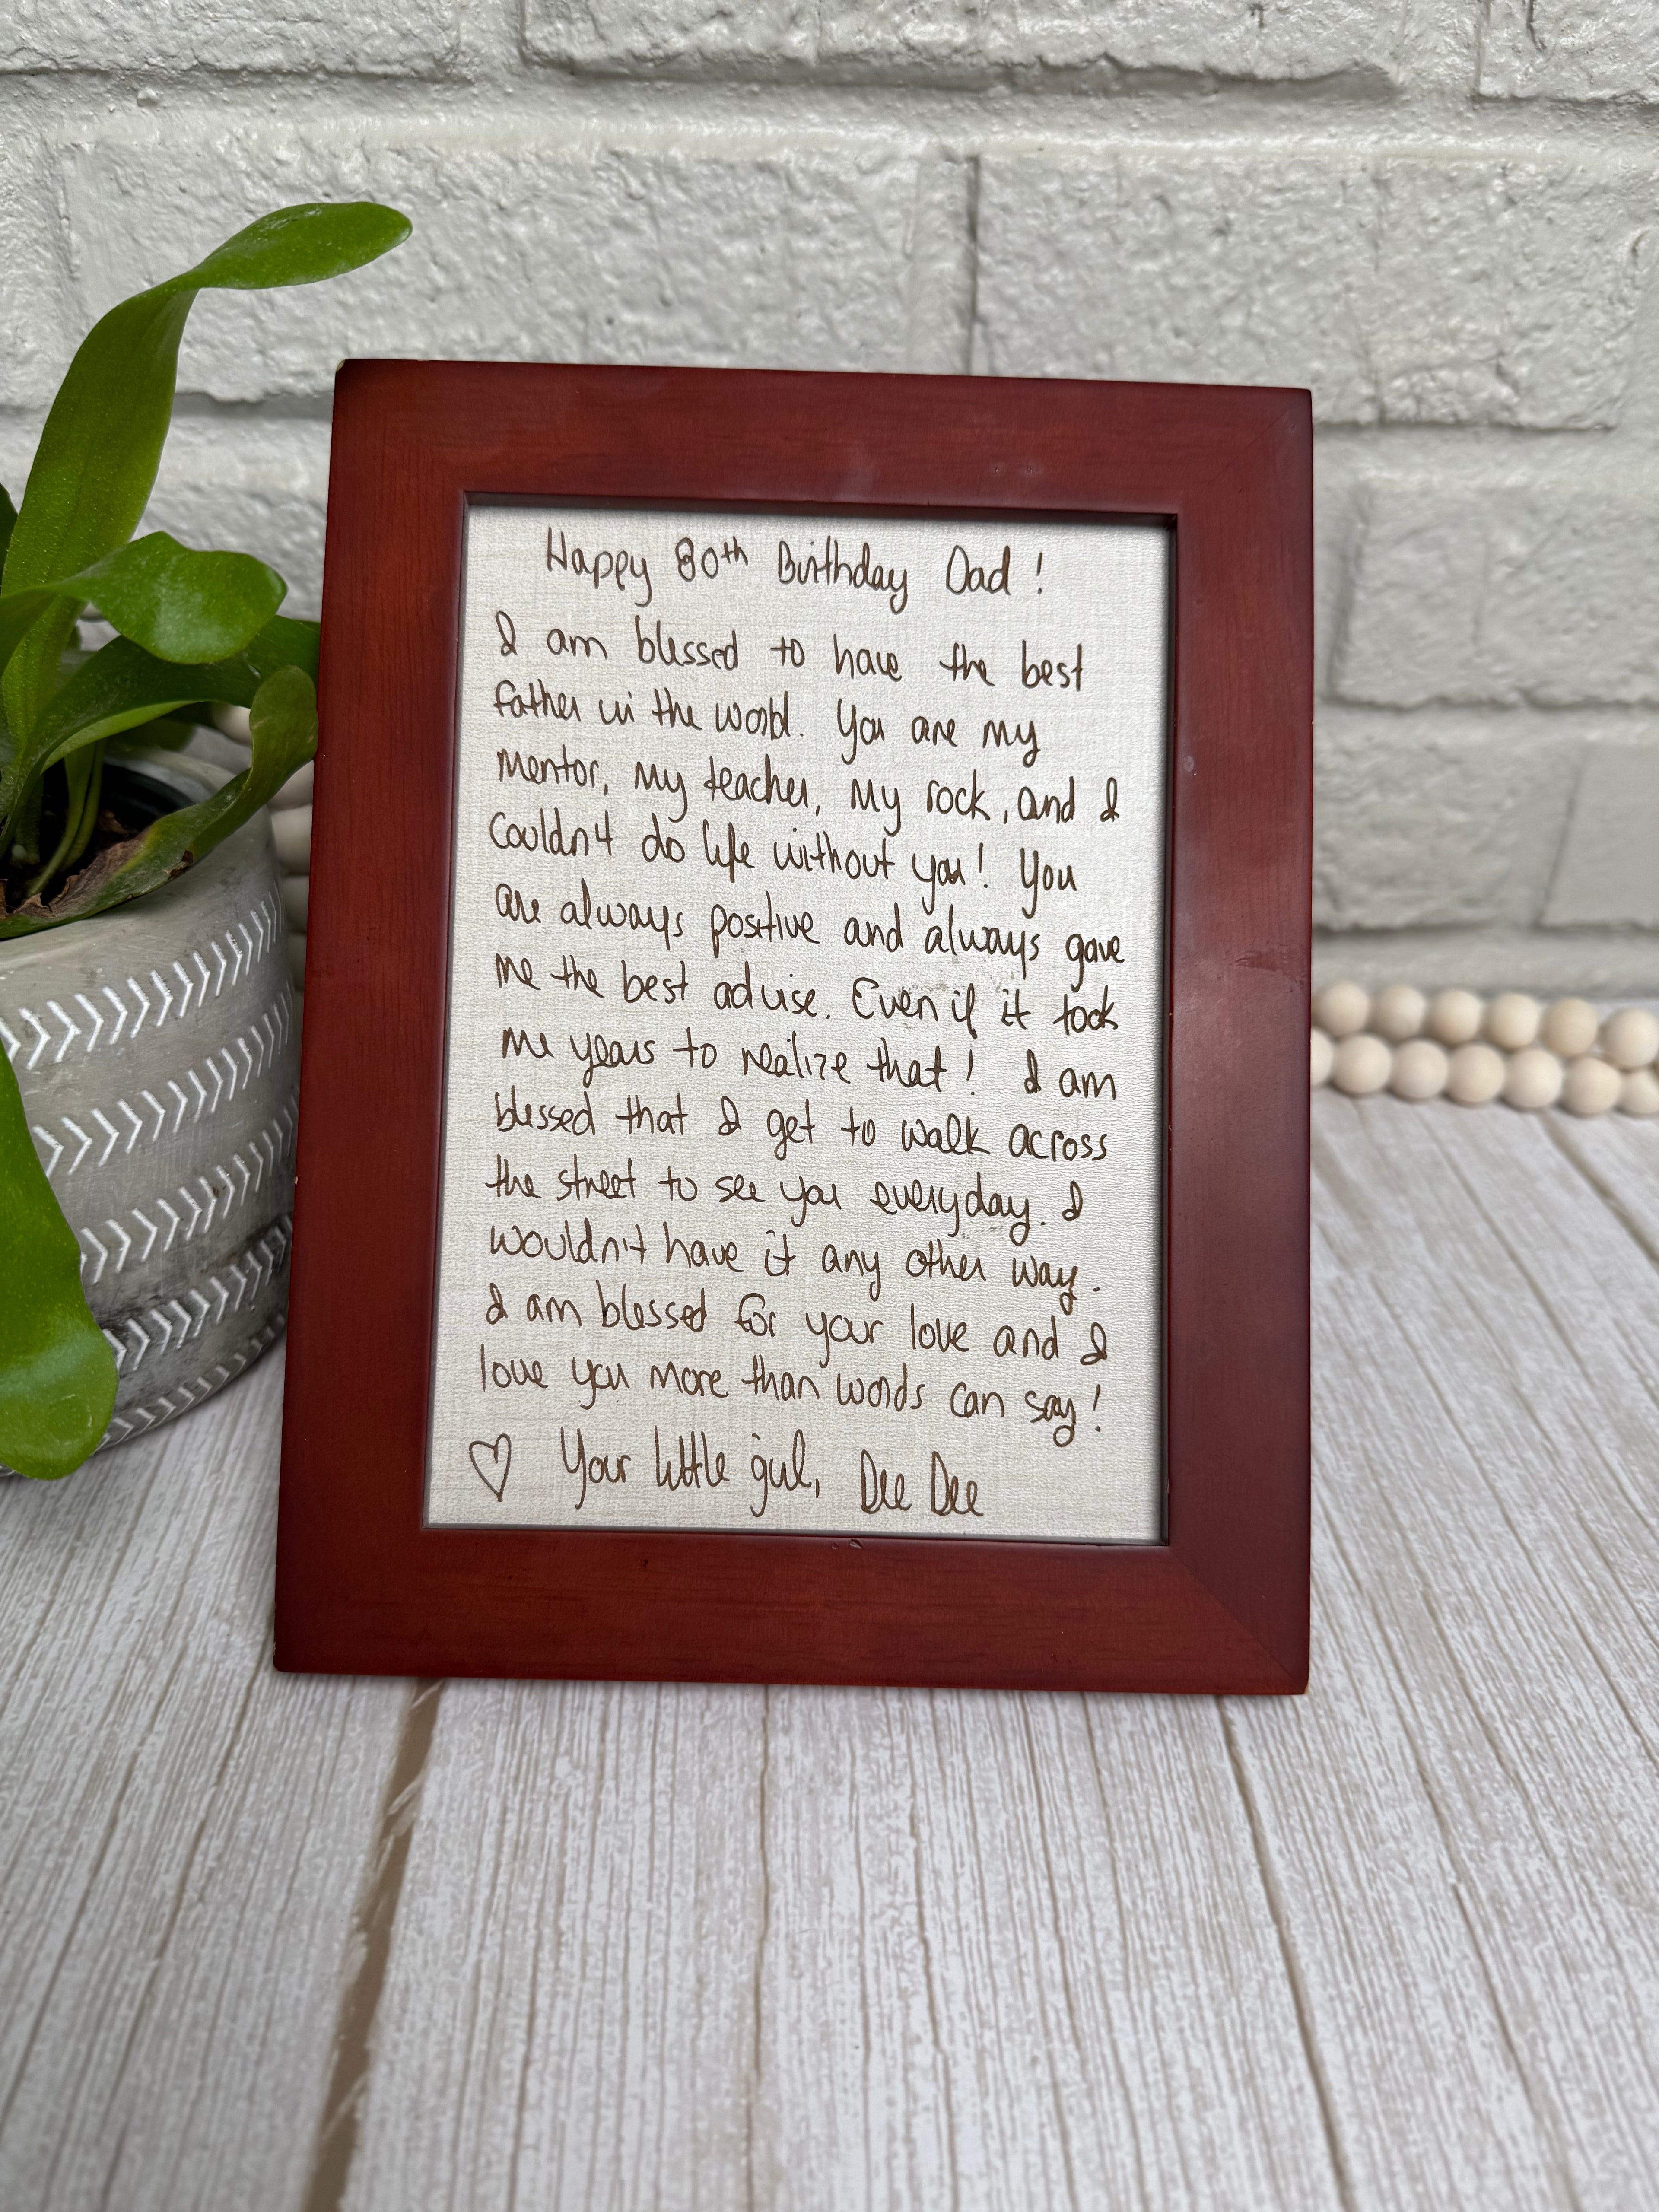 Happy 80th Birthday Dad!
I am blessed to have the best
father in the world. You are my
mentor, my teacher, my rock, and I
couldn't do life without you! You
are always positive and always gave
me the best advise. Even if it took
me years to realize that! I am
blessed that I get to walk across
the street to see you everyday. I
wouldn't have it any other way.
I am blessed for your love and I
love you more than words can say!
♡ Your little girl, Dee Dee